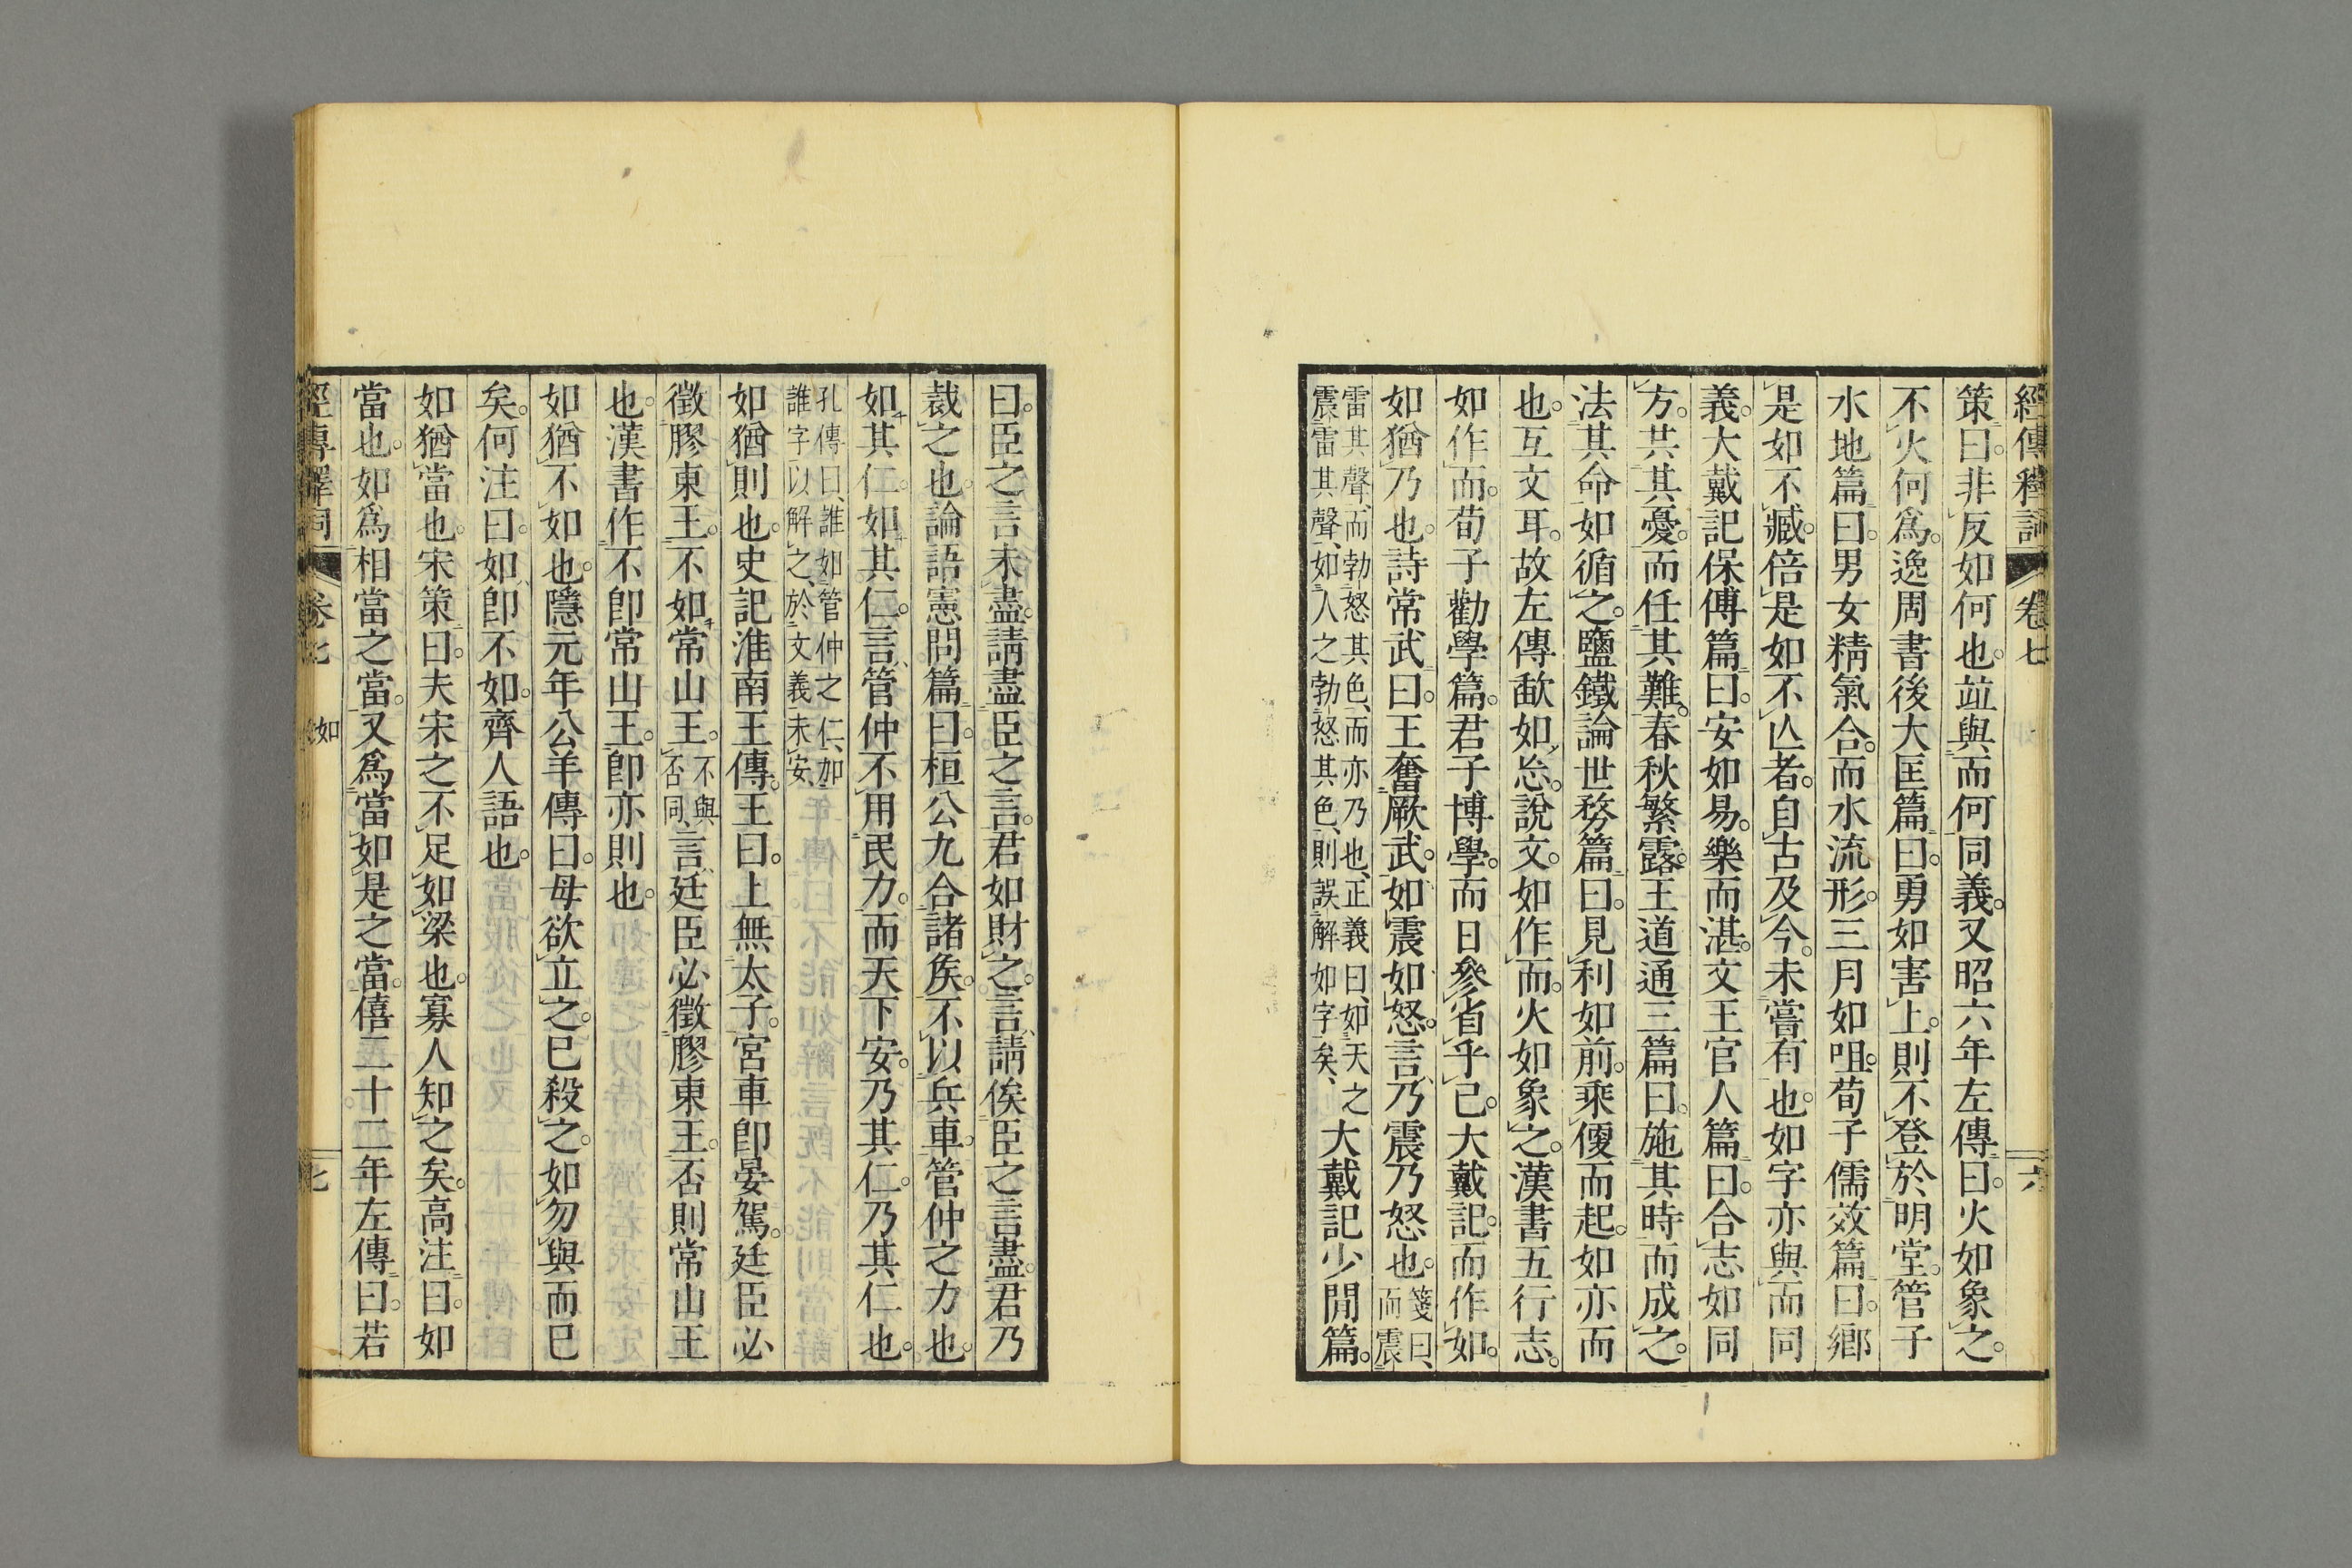 經傳釋詞 卷七 六
策曰。非反如何也。竝與而何同義。又昭六年左傳曰。火如象之。
不火何爲。逸周書後大匡篇曰。勇如害上。則不登於明堂。管子
水地篇曰。男女精氣合。而水流形。三月如咀。荀子儒效篇曰。鄉
是如不臧。倍是如不亾者。自古及今。未嘗有也。如字亦與而同
義。大戴記保傅篇曰。安如易。樂而湛。文王官人篇曰。合志如同
方。共其憂。而任其難。春秋繁露。王道通三篇曰。施其時而成之。
法其命如循之。鹽鐵論世務篇曰。見利如前。乘㥠而起。如亦而
也。互文耳。故左傳歃如忘。說文。如作而。火如象之。漢書五行志。
如作而。荀子勸學篇。君子博學。而日參省乎己。大戴記。而作如。
如猶乃也。詩常武曰。王奮厥武。如震如怒。言、乃震乃怒也。箋曰、而震
雷其聲、而勃怒其色、而亦乃也、正義曰、如天之震雷其聲、如人之勃怒其色、則誤解如字矣、大戴記少閒篇。
曰。臣之言未盡。請盡臣之言。君如財之。言、請俟臣之言盡。君乃
裁之也。論語憲問篇。曰。桓公九合諸矦。不以兵車。管仲之力也。
如其仁。如其仁。言、管仲不用民力。而天下安。乃其仁。乃其仁也。
孔傳曰、誰如管仲之仁、加誰字以解之、於文義未安、
如猶則也。史記淮南王傳。王曰。上無太子。宮車卽晏駕。廷臣必
徵膠東王。不如常山王。不與否同、言、廷臣必徵膠東王。否則常山王
也。漢書作不卽常山王。卽亦則也。
如猶不如也。隱元年公羊傳曰。母欲立之。已殺之。如勿與而已
矣。何注曰。如、卽不如。齊人語也。
如猶當也。宋策曰。夫宋之不足如梁也。寡人知之矣。高注曰。如
當也。如爲相當之當。又爲當如是之當。僖二十二年左傳曰。若
經傳釋詞 卷七 如 七